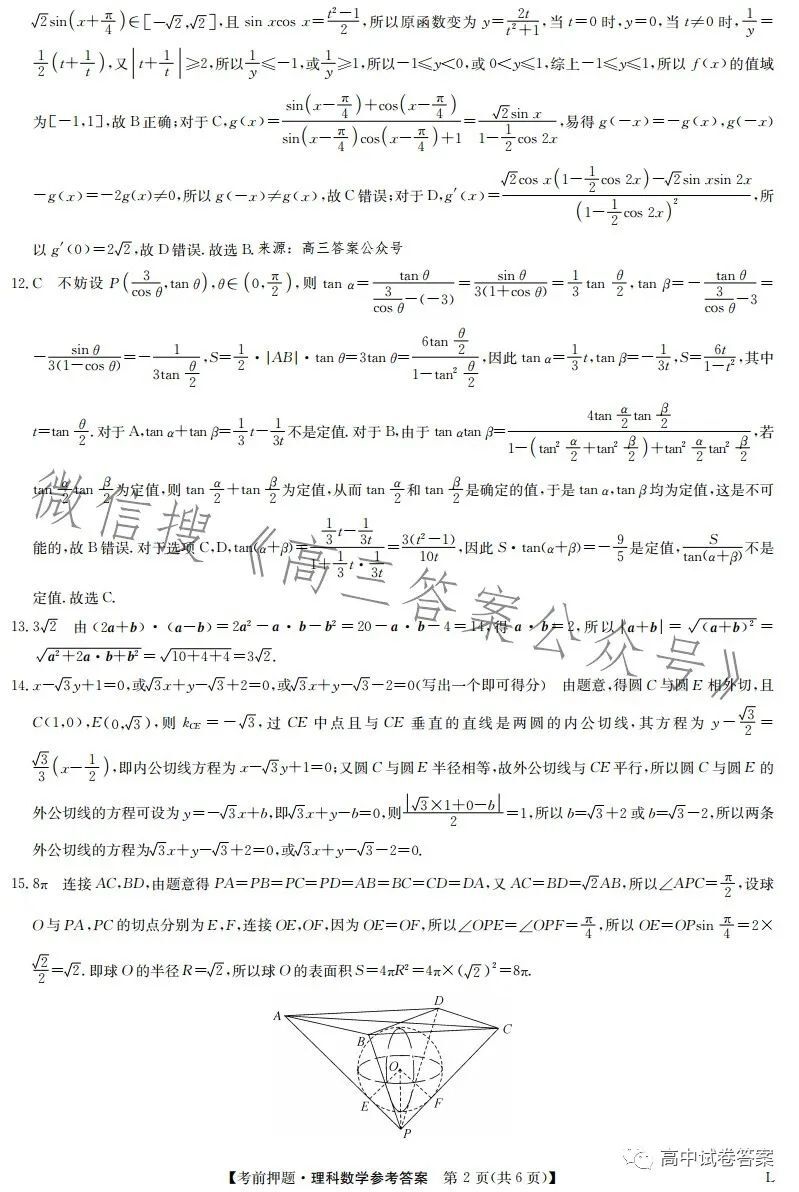 √2sin(x+π/4)∈[-√2,√2],且 sin xcos x=(t²-1)/2,所以原函数变为 y=2t/(t²+1),当 t=0 时,y=0,当 t≠0 时,1/y=
1/2(t+1/t),又|t+1/t|≥2,所以1/y≤-1,或1/y≥1,所以-1≤y<0,或 0<y≤1,综上-1≤y≤1,所以 f(x)的值域
为[-1,1],故 B 正确;对于 C,g(x)=(sin(x-π/4)+cos(x-π/4))/(sin(x-π/4)cos(x-π/4)+1)=√2sin x/(1-1/2cos 2x),易得 g(-x)=-g(x),g(-x)
-g(x)=-2g(x)≠0,所以 g(-x)≠g(x),故 C 错误;对于 D,g′(x)=(√2cos x(1-1/2cos 2x)-√2sin xsin 2x)/(1-1/2cos 2x)²,所
以 g′(0)=2√2,故 D 错误. 故选 B. 来源:高三答案公众号
12. C 不妨设 P(3/cos θ,tan θ),θ∈(0,π/2),则 tan α=tan θ/(3/cos θ-(-3))=sin θ/3(1+cos θ)=1/3 tan θ/2,tan β=-tan θ/(3/cos θ-3)=
-sin θ/3(1-cos θ)=-1/(3tan θ/2),S=1/2·|AB|·tan θ=3tan θ=6tan θ/2/(1-tan² θ/2),因此 tan α=1/3 t,tan β=-1/3t,S=6t/(1-t²),其中
t=tan θ/2. 对于 A,tan α+tan β=1/3 t-1/3t不是定值. 对于 B,由于 tan αtan β=4tan α/2 tan β/2/(1-(tan² α/2+tan² β/2)+tan² α/2 tan² β/2),若
tan α/2 tan β/2为定值,则 tan α/2+tan β/2为定值,从而 tan α/2和 tan β/2是确定的值,于是 tan α,tan β 均为定值,这是不可
能的,故 B 错误. 对于选项 C,D,tan(α+β)=(1/3 t-1/3t)/(1+1/3 t·1/3t)=3(t²-1)/10t,因此 S·tan(α+β)=-9/5是定值,S/tan(α+β)不是
定值. 故选 C.
13. 3√2 由(2a+b)·(a-b)=2a²-a·b-b²=20-a·b-4=14,得 a·b=2,所以|a+b|=√(a+b)²=
√(a²+2a·b+b²)=√(10+4+4)=3√2.
14. x-√3y+1=0,或√3x+y-√3+2=0,或√3x+y-√3-2=0(写出一个即可得分) 由题意,得圆 C 与圆 E 相外切,且
C(1,0),E(0,√3),则 kCE=-√3,过 CE 中点且与 CE 垂直的直线是两圆的内公切线,其方程为 y-√3/2=
√3/3(x-1/2),即内公切线方程为 x-√3y+1=0;又圆 C 与圆 E 半径相等,故外公切线与 CE 平行,所以圆 C 与圆 E 的
外公切线的方程可设为 y=-√3x+b,即√3x+y-b=0,则|√3×1+0-b|/2=1,所以 b=√3+2 或 b=√3-2,所以两条
外公切线的方程为√3x+y-√3+2=0,或√3x+y-√3-2=0.
15. 8π 连接 AC,BD,由题意得 PA=PB=PC=PD=AB=BC=CD=DA,又 AC=BD=√2AB,所以∠APC=π/2,设球
O 与 PA,PC 的切点分别为 E,F,连接 OE,OF,因为 OE=OF,所以∠OPE=∠OPF=π/4,所以 OE=OPsin π/4=2×
√2/2=√2. 即球 O 的半径 R=√2,所以球 O 的表面积 S=4πR²=4π×(√2)²=8π.
A
D
B
C
O
E
F
P
微信搜《高三答案公众号》
高中试卷答案
【考前押题·理科数学参考答案 第 2 页(共 6 页)】 L